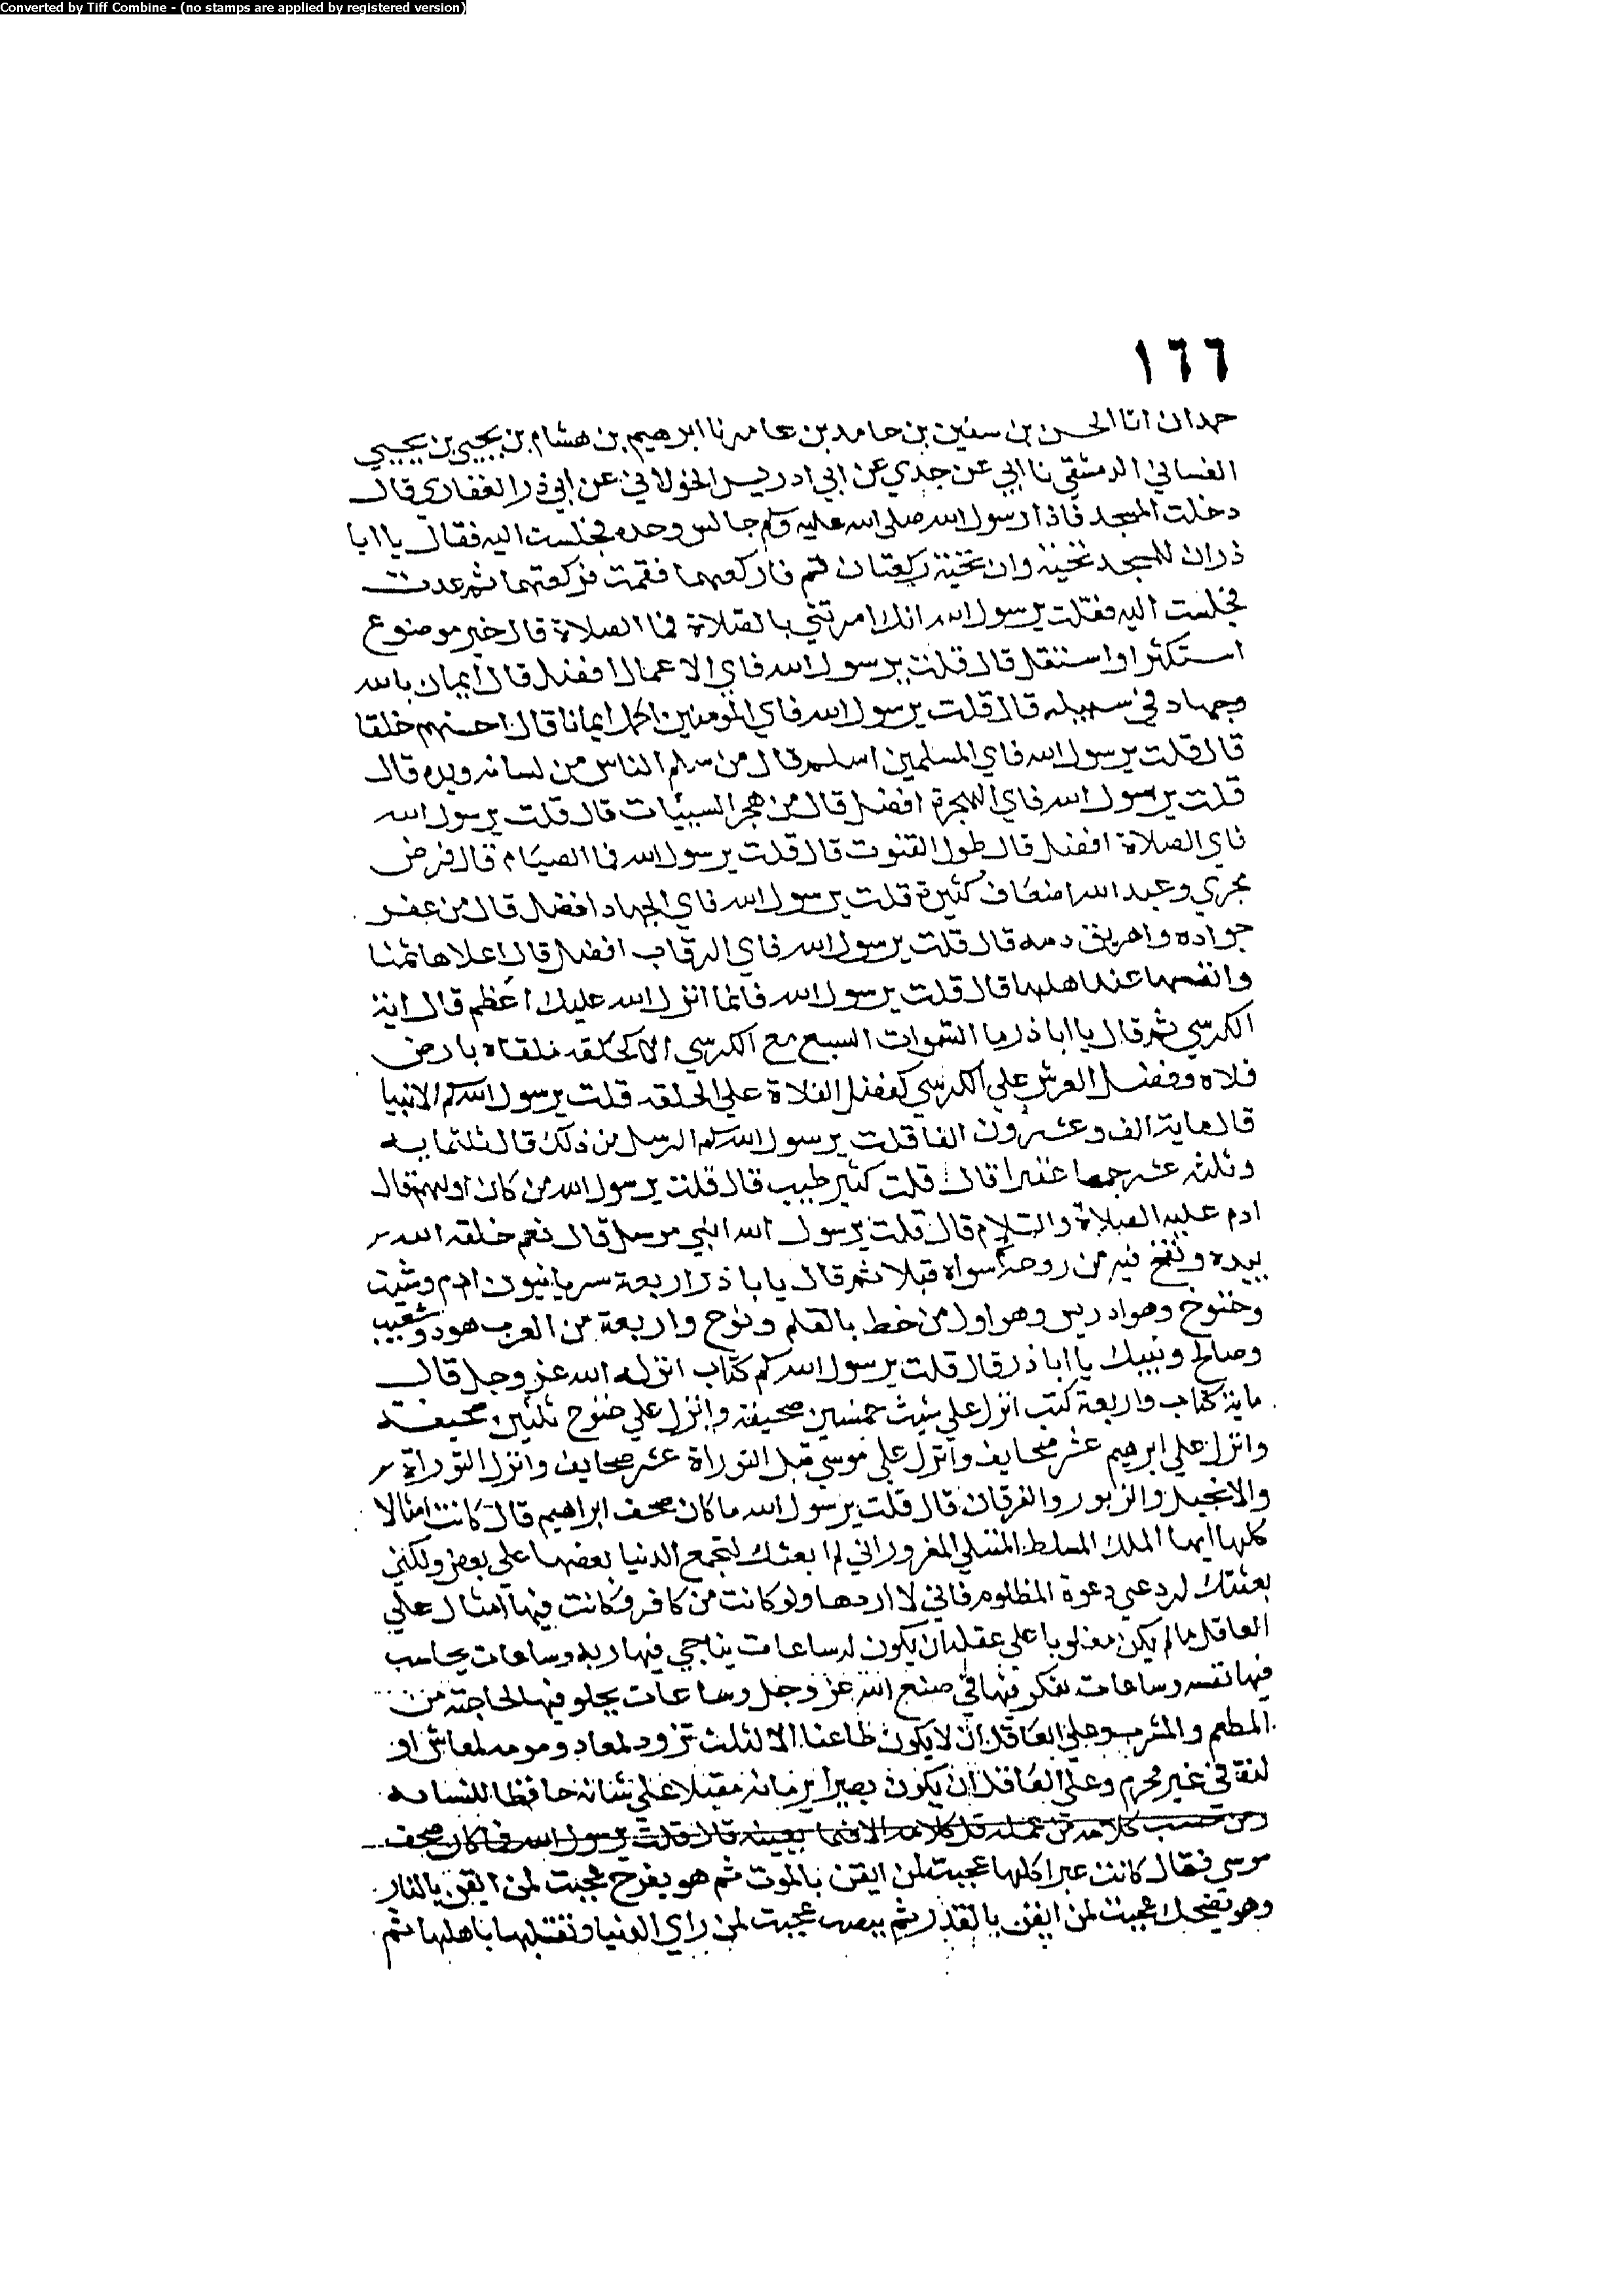 Converted by Tiff Combine - (no stamps are applied by registered version)
١٦٦
حمدان انا الحسن بن سفين بن حامد بن عامر نا ابرهيم بن هشام بن يحيى بن يحيي
الغساني الدمشقي نا ابي عن جدي عن ابي ادريس الخولاني عن ابي ذر الغفاري قال
دخلت المسجد فاذا رسول الله صلى الله عليه وسلم جالس وحده فجلست اليه فقال يا ابا
ذر ان للمسجد تحية وان تحيته ركعتان قم فاركعهما فقمت فركعتهما ثم عدت
فجلست اليه فقلت يرسول الله انك امرتني بالصلاة فما الصلاة قال خير موضوع
استكثر او استقل قال قلت يرسول الله فاي الاعمال افضل قال ايمان بالله
وجهاد في سبيله قال قلت يرسول الله فاي المومنين اكمل ايمانا قال احسنهم خلقا
قال قلت يرسول الله فاي المسلمين اسلم قال من سلم الناس من لسانه ويده قال
قلت يرسول الله فاي الهجرة افضل قال من هجر السيئات قال قلت يرسول الله
فاي الصلاة افضل قال طول القنوت قال قلت يرسول الله فما الصيام قال فرض
مجزي وعند الله اضعاف كثيرة قلت يرسول الله فاي الجهاد افضل قال من عقر
جواده واهريق دمه قال قلت يرسول الله فاي الرقاب افضل قال اعلاها ثمنا
وانفسها عند اهلها قال قلت يرسول الله فانما انزل الله عليك اعظم قال اية
الكرسي ثم قال يا ابا ذر ما السموات السبع مع الكرسي الا كحلقه ملقاه بارض
فلاه وفضل العرش علي الكرسي كفضل الفلاة علي الحلقه قلت يرسول الله كم الانبيا
قال ماية الف وعشرون الفا قلت يرسول الله كم الرسل من ذلك قال ثلثمايه
وثلثه عشر جما غفيرا قال قلت كثير طيب قال قلت يرسول الله من كان اولهم قال
ادم عليه الصلاة والسلام قال قلت يرسول الله انبي مرسل قال نعم خلقه الله
بيده ونفخ فيه من روحه سواه قبلا ثم قال يا با ذر اربعة سريانيون ادم وشيث
وخنوخ وهو ادريس وهو اول من خط بالقلم ونوح واربعة من العرب هود وشعيب
وصالح ونبيك يا ابا ذر قال قلت يرسول الله كم كتاب انزله الله عز وجل قال
ماية كتاب واربعة كتب انزل علي شيث خمسين صحيفة وانزل علي خنوخ ثلثين صحيفة
وانزل علي ابرهيم عشر صحايف وانزل علي موسي قبل التوراة عشر صحايف وانزل التوراة
والانجيل والزبور والفرقان قال قلت يرسول الله ما كان صحف ابراهيم قال كانت امثالا
كلها ايها الملك المسلط المبتلي المغرور اني لم ابعثك لتجمع الدنيا بعضها علي بعض ولكني
بعثتك لترد عني دعوة المظلوم فاني لا اردها ولو كانت من كافر وكانت فيها امثال علي
العاقل ما لم يكن مغلوبا علي عقله ان يكون له ساعات يناجي فيها ربه وساعات يحاسب
فيها نفسه وساعات يفكر فيها في صنع الله عز وجل وساعات يخلو فيها لحاجته من
المطعم والمشرب وعلي العاقل ان لا يكون ظاعنا الا لثلث تزود لمعاد ومرمه لمعاش او
لذة في غير محرم وعلي العاقل ان يكون بصيرا بزمانه مقبلا علي شانه حافظا للسانه
ومن حسب كلامه من عمله قل كلامه الا فيما يعنيه قال قلت يرسول الله فما كان صحف
موسي فقال كانت عبرا كلها عجبت لمن ايقن بالموت ثم هو يفرح عجبت لمن ايقن بالنار
وهو يضحك عجبت لمن ايقن بالقدر ثم ينصب عجبت لمن راي الدنيا وتقلبها باهلها ثم